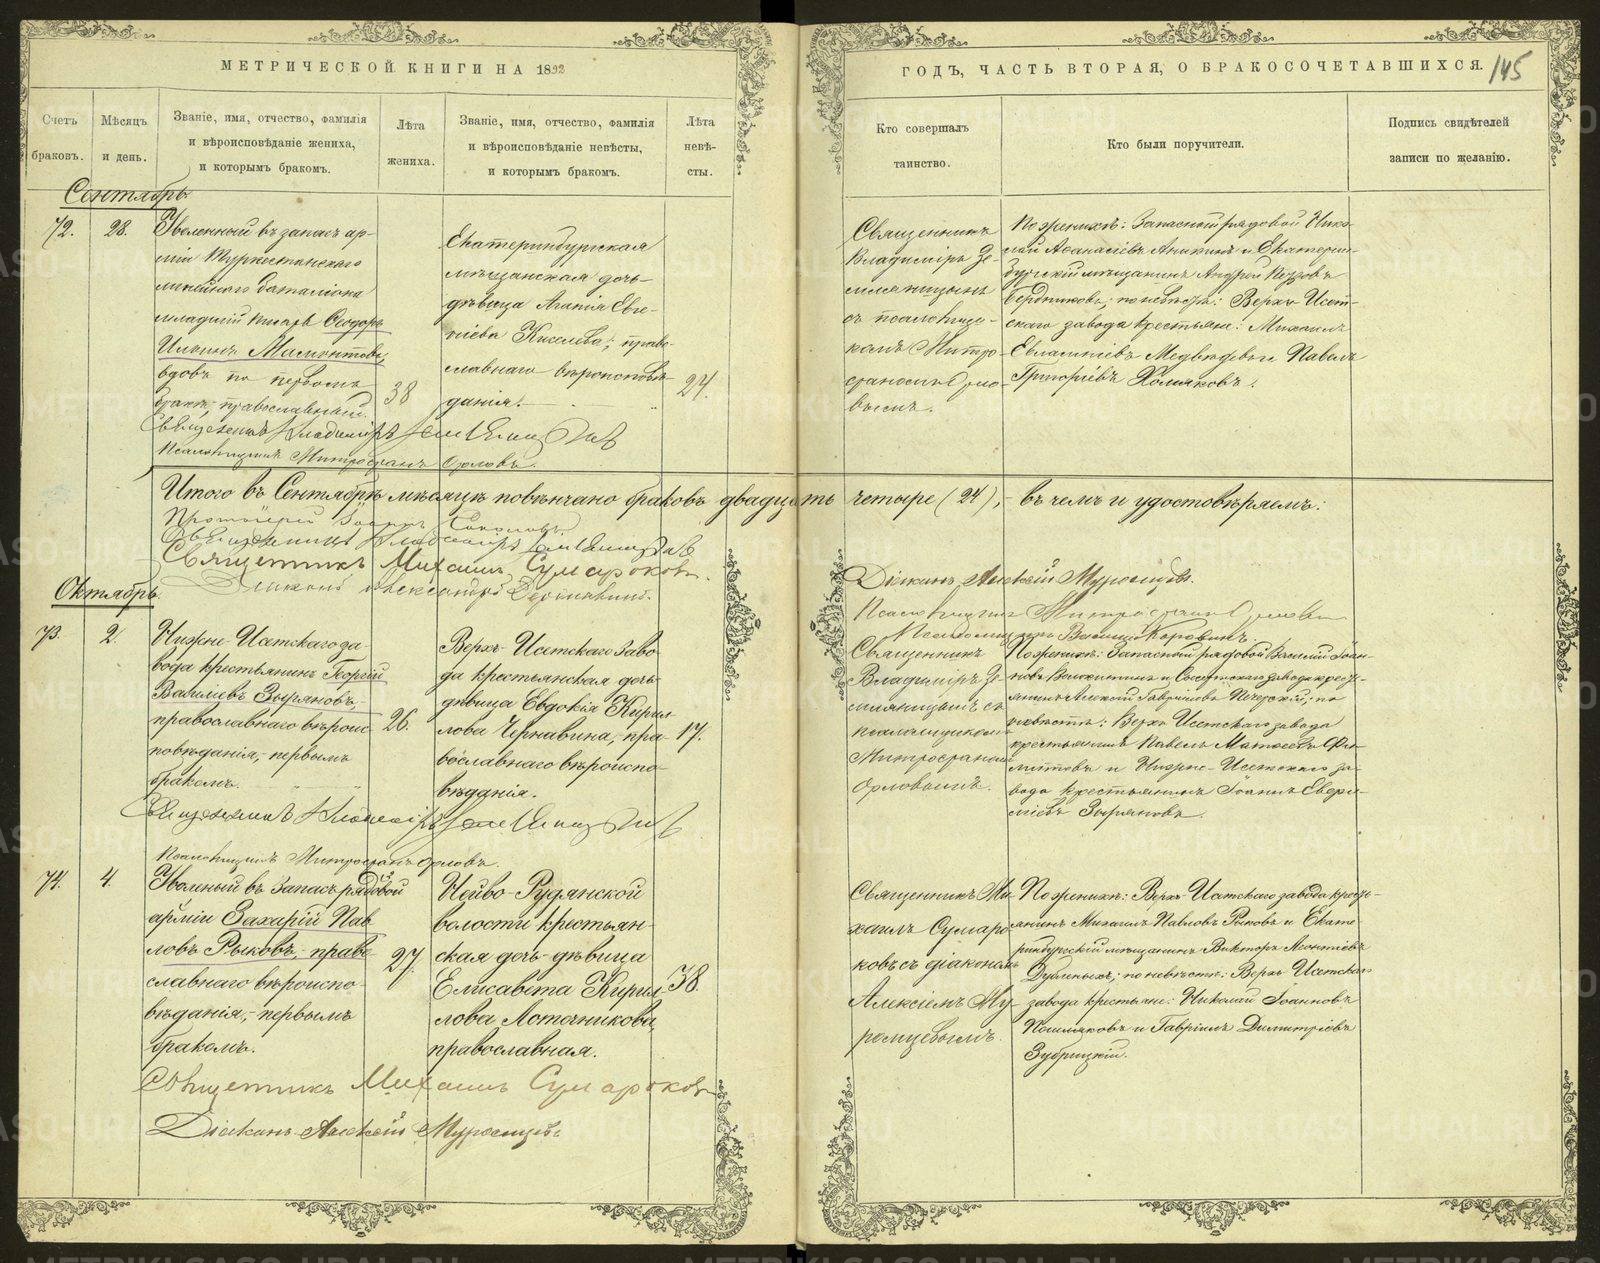 МЕТРИЧЕСКОЙ КНИГИ НА 1892
ГОДЪ, ЧАСТЬ ВТОРАЯ, О БРАКОСОЧЕТАВШИХСЯ.
145
Счетъ браковъ.
Мѣсяцъ и день.
Званіе, имя, отчество, фамилія
и вѣроисповѣданіе жениха,
и которымъ бракомъ.
Лѣта жениха.
Званіе, имя, отчество, фамилія
и вѣроисповѣданіе невѣсты,
и которымъ бракомъ.
Лѣта невѣ-
сты.
Кто совершалъ
таинство.
Кто были поручители.
Подпись свидѣтелей
записи по желанію.
Сентябрь.
72.
28.
Уволенный въ запасъ ар-
міи Туркестанскаго
линейнаго баталіона
младшій писарь Ѳеодоръ
Мамонтовъ,
вдовъ по первомъ
бракѣ, православный.
38
Екатеринбургская
мѣщанская дочь-
дѣвица Агапія Евге-
ніева Киселева; право-
славнаго вѣроисповѣ-
данія.
24.
Священникъ
Владиміръ Зе-
мляницынъ
съ псаломщи-
комъ Митро-
фаномъ Орло-
вымъ.
По женихѣ: Запасный рядовой Нико-
лай Аѳанасіевъ Аникинъ и Екатерин-
бургскій мѣщанинъ Андрей Петровъ
Бердниковъ; по невѣстѣ: Верхъ-Исет-
скаго завода крестьяне: Михаилъ
Евлампіевъ Медвѣдевъ и Павелъ
Григоріевъ Холмаковъ.
Священникъ Владиміръ Земляницынъ
Псаломщикъ Митрофанъ Орловъ.
Итого въ Сентябрѣ мѣсяцѣ повѣнчано браковъ двадцать четыре (24), въ чемъ и удостовѣряемъ:
Протоіерей Іоаннъ Соколовъ
Священникъ Владиміръ Земляницынъ
Священникъ Михаилъ Сумароковъ.
Діаконъ Александръ
Діаконъ Алексій Муромцевъ.
Псаломщикъ Митрофанъ Орловъ
Псаломщикъ Василій
Октябрь.
73.
2.
Нижне-Исетскаго за-
вода крестьянинъ Георгій
Василіевъ Зыряновъ,
православнаго вѣроис-
повѣданія, первымъ
бракомъ.
26.
Верхъ-Исетскаго заво-
да крестьянская дочь-
дѣвица Евдокія Кирил-
лова Чернавина, пра-
вославнаго вѣроиспо-
вѣданія.
17.
Священникъ
Владиміръ Зе-
мляницынъ съ
псаломщикомъ
Митрофаномъ
Орловымъ.
По женихѣ: Запасный рядовой Василій Іоан-
новъ и Сысертскаго завода кресть-
янинъ Алексій Гавріиловъ Печерскій; по
невѣстѣ: Верхъ-Исетскаго завода
крестьянинъ Павелъ Матѳеевъ Фи-
липповъ и Нижне-Исетскаго за-
вода крестьянинъ Іоаннъ
Зыряновъ.
Священникъ Владиміръ Земляницынъ
Псаломщикъ Митрофанъ Орловъ.
74.
4.
Уволенный въ запасъ рядовой
арміи Захарій Пав-
ловъ Рыковъ, право-
славнаго вѣроиспо-
вѣданія, первымъ
бракомъ.
27.
Нейво-Рудянской
волости крестьян-
ская дочь-дѣвица
Елисавета Кирил-
лова Лоточникова,
православная.
38.
Священникъ Ми-
хаилъ Сумаро-
ковъ съ діакономъ
Алексіемъ Му-
ромцевымъ.
По женихѣ: Верхъ-Исетскаго завода кресть-
янинъ Михаилъ Павловъ Рыковъ и Екате-
ринбургскій мѣщанинъ Викторъ Леонтіевъ
по невѣстѣ: Верхъ-Исетскаго
завода крестьяне: Николай Іоанновъ
и Гавріилъ Димитріевъ
Зубрицкій.
Священникъ Михаилъ Сумароковъ
Діаконъ Алексій Муромцевъ